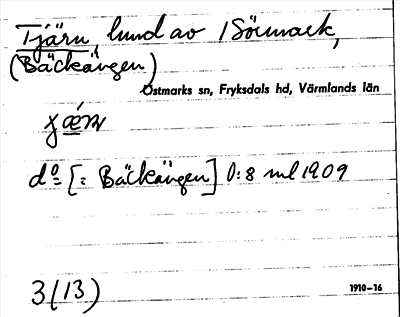 Tjärn lund av 1 Sörmark,
(Bäckängen)
Östmarks sn, Fryksdals hd, Värmlands län
do [: Bäckängen] 0:8 ml 1909
3(13)
1910–16